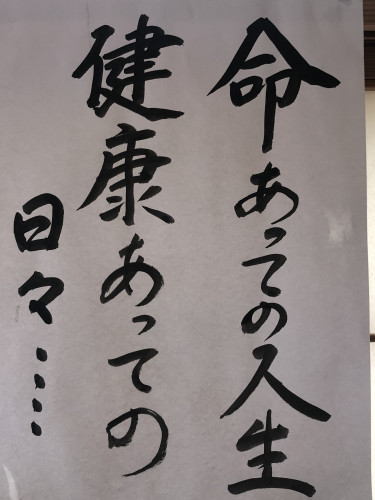 命あっての人生
健康あっての
日々・・・・